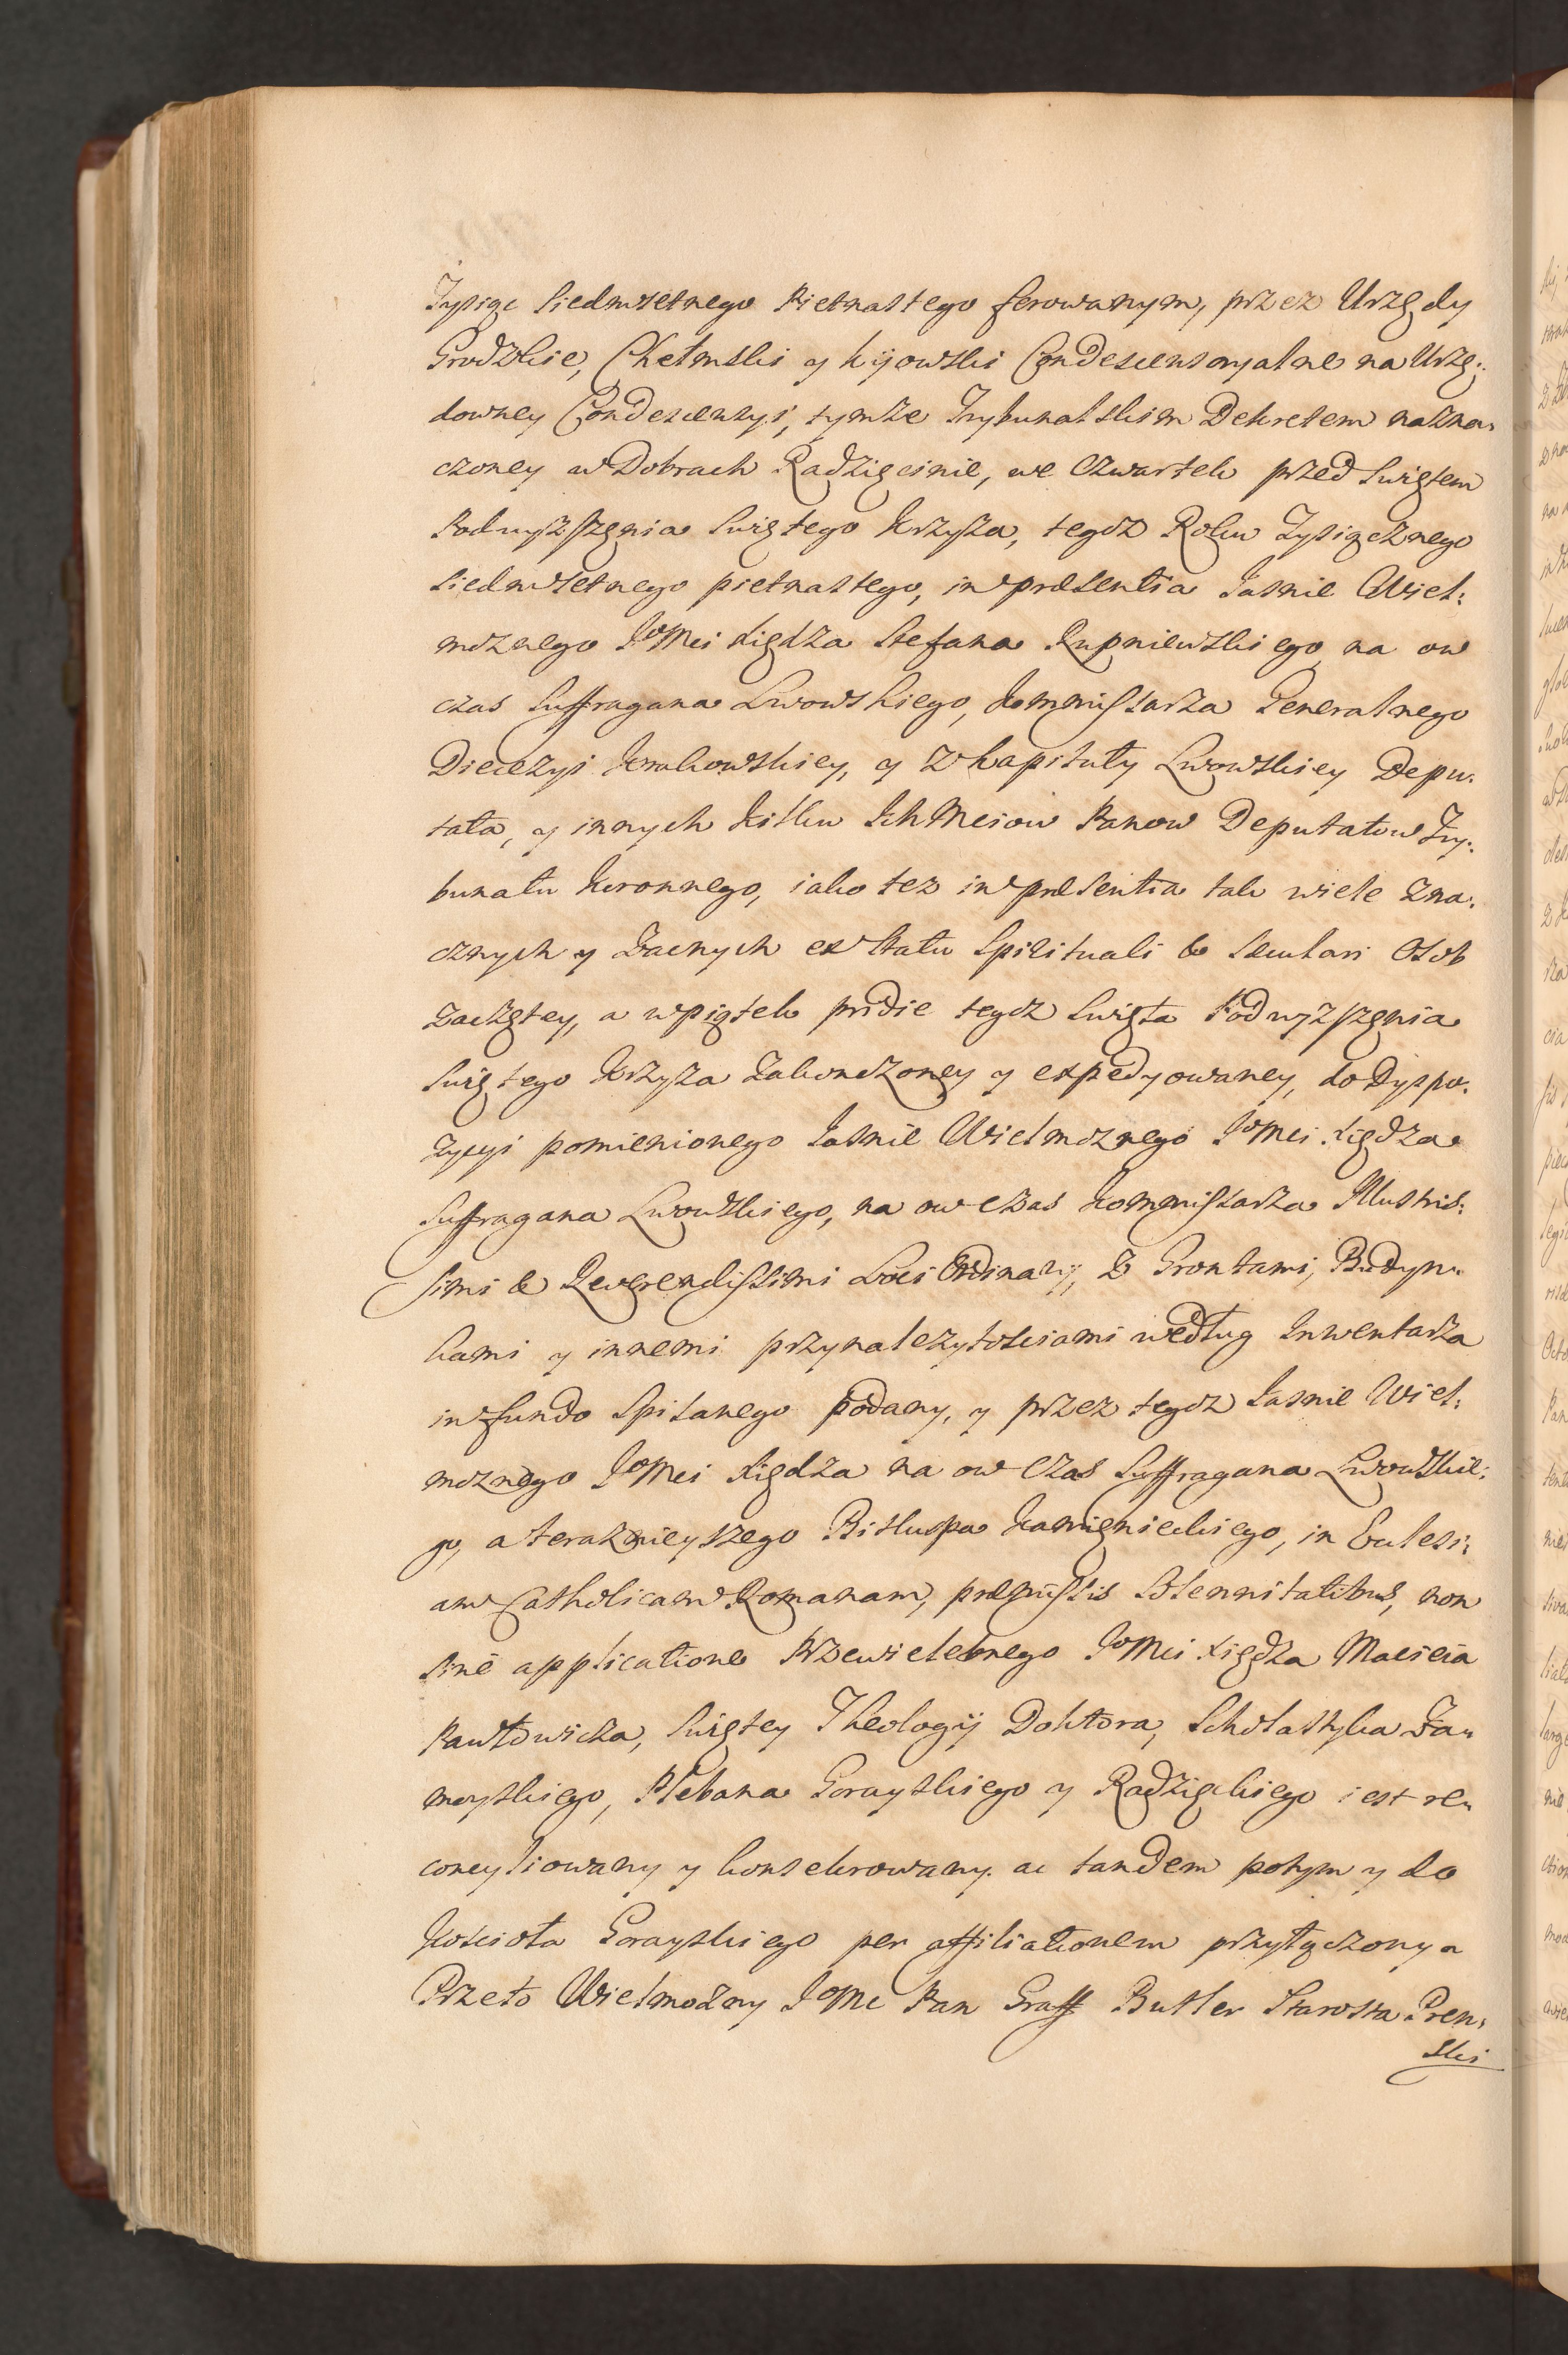 Tysiąc Siedmsetnego Pietnastego ferowanym, przez Urzędy
Grodzkie, Chełmski y kijowski Condescensoryalne na Urzę:
downey Condescensyi, tymże Trybunalskim Dekretem nazna:
czoney w Dobrach Radzięcinie, we Czwartek przed Swiętem
Podwyższęnia Swiętego Krzyża, tegoz Roku Tysiącznego
Siedmsetnego pietnastego, in præsentia Jasnie Wiel:
moznego JoMci Xiędza Stefana Rupniewskiego na ow
czas Suffragana Lwowskiego, Kommissarza Generalnego
Diecezyi Krakowskiey, y z kapituły Lwowskiey Depu:
tata, y innych kilku IchMciow Panow Deputatow Try:
bunału Koronnego, iako tez in præsentia tak wiele Zna:
cznych y Zacnych ex Statu Spirituali & Seculari Osob
Zaczętey, a w piątek pridie tegoz Swięta Podwyższęnia
Swiętego Krzyza Zakonczoney y expedyowaney, do Dyspo:
zycyi pomienionego Jasnie Wielmoznego JoMci Xiędza
Suffragana Lwowskiego, na ow czas Kommissarza Illustris:
simi & Reverendissimi Loci Ordinarij, z Grontami, Budyn:
kami y innemi przynależytościami według Inwentarza
in fundo Spisanego podany, y przez tegoz Jasnie Wiel:
moznego JoMci Xiędza na ow czas Suffragana Lwowskie:
go, a teraznieyszego Biskupa Kamięnieckiego, in Eclesi:
am Catholicam Romanam, præmissis Solennitatibus, non
sine applicatione Przewielebnego JoMci Xiędza Macieia
Pawłowicza, Swiętey Theologij Doktora, Scholastyka Za:
moyskiego, Plebana Gorayskiego y Radzięckiego iest re:
concyliowany y konsekrowany. ac tandem potym y do
Kościoła Gorayskiego per affiliationem przyłączony
Przeto Wielmożny JoMc Pan Graff Butler Starosta Pren:
ski